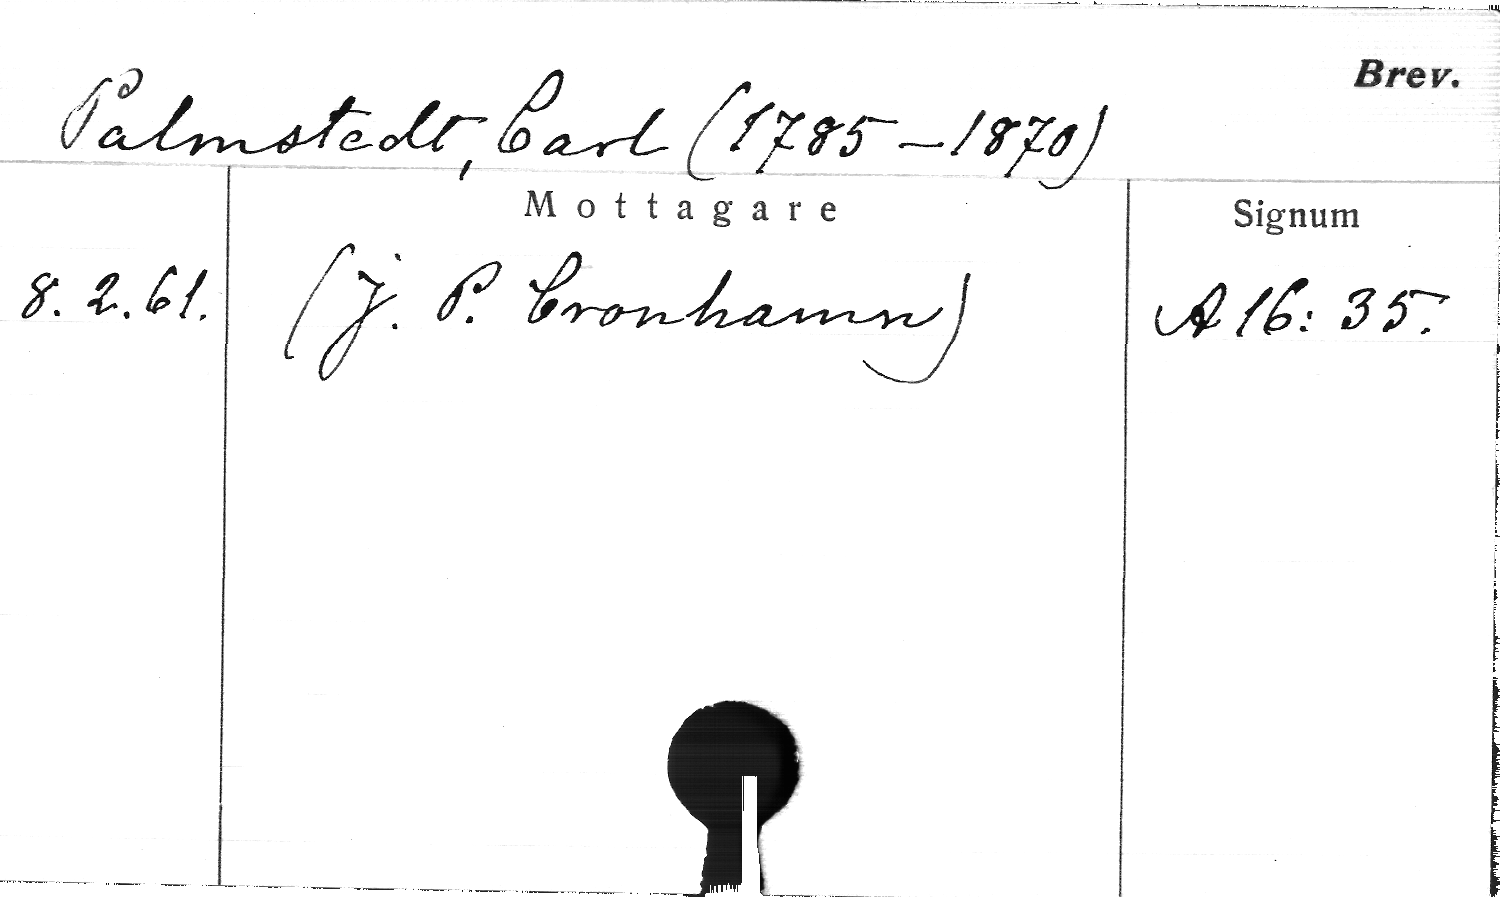 Brev.
Palmstedt, Carl (1785–1870)
Mottagare Signum
8. 2. 61. (J. P. Cronhamn) A 16: 35.